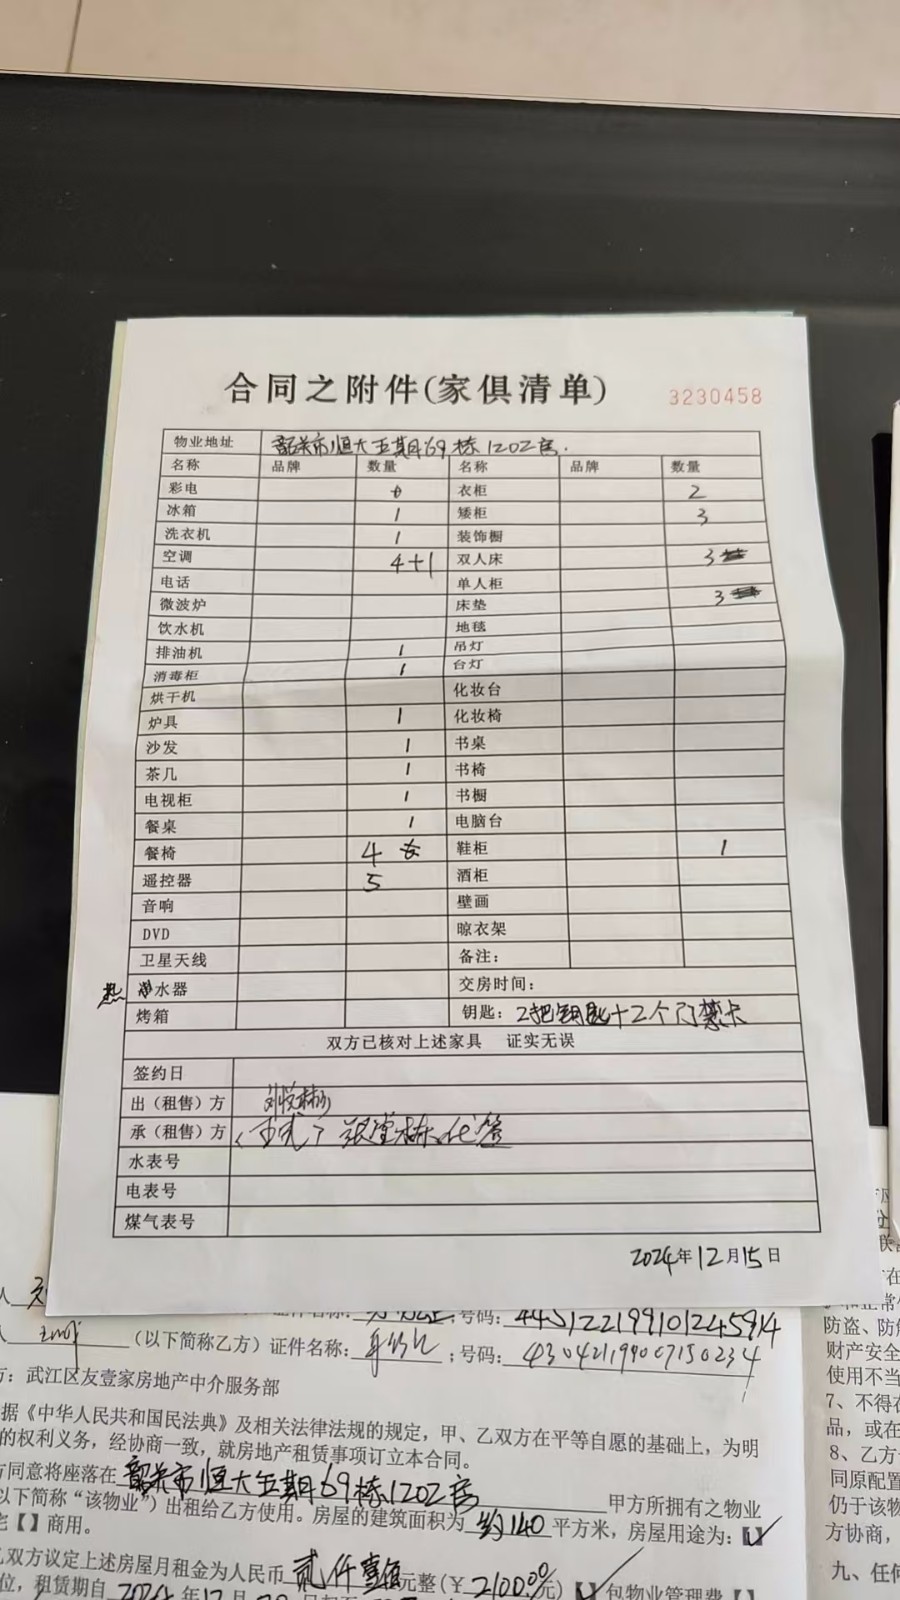 合同之附件(家俱清单)
3230458
物业地址 韶关市恒大五期69栋1202房.
名称 品牌 数量 名称 品牌 数量
彩电 衣柜 2
冰箱 1 矮柜 3
洗衣机 1 装饰橱
空调 4+1 双人床 3
电话 单人柜
微波炉 床垫 3
饮水机 地毯
排油机 1 吊灯
消毒柜 1 台灯
烘干机 化妆台
炉具 1 化妆椅
沙发 1 书桌
茶几 1 书椅
电视柜 1 书橱
餐桌 1 电脑台
餐椅 4 鞋柜 1
遥控器 5 酒柜
音响 壁画
DVD 晾衣架
卫星天线 备注：
热 水器 交房时间：
烤箱 钥匙：2把钥匙+2个门禁卡
双方已核对上述家具 证实无误
签约日
出（租售）方
承（租售）方 代签
水表号
电表号
煤气表号
2024年12月15日
号码：
（以下简称乙方）证件名称： ；号码：430421199007150234
方：武江区友壹家房地产中介服务部
据《中华人民共和国民法典》及相关法律法规的规定，甲、乙双方在平等自愿的基础上，为明
的权利义务，经协商一致，就房地产租赁事项订立本合同。
方同意将座落在韶关市恒大五期69栋1202房 甲方所拥有之物业
以下简称“该物业”）出租给乙方使用。房屋的建筑面积为约140平方米，房屋用途为：【✓】
宅【】商用。
乙双方议定上述房屋月租金为人民币贰仟壹佰元整(￥2100.00元)【✓】包物业管理费【】
位，租赁期自2024年12月
防盗、防
财产安全
使用不当
7、不得在
品，或在
8、乙方
同原配置
仍于该物
方协商，
九、任何